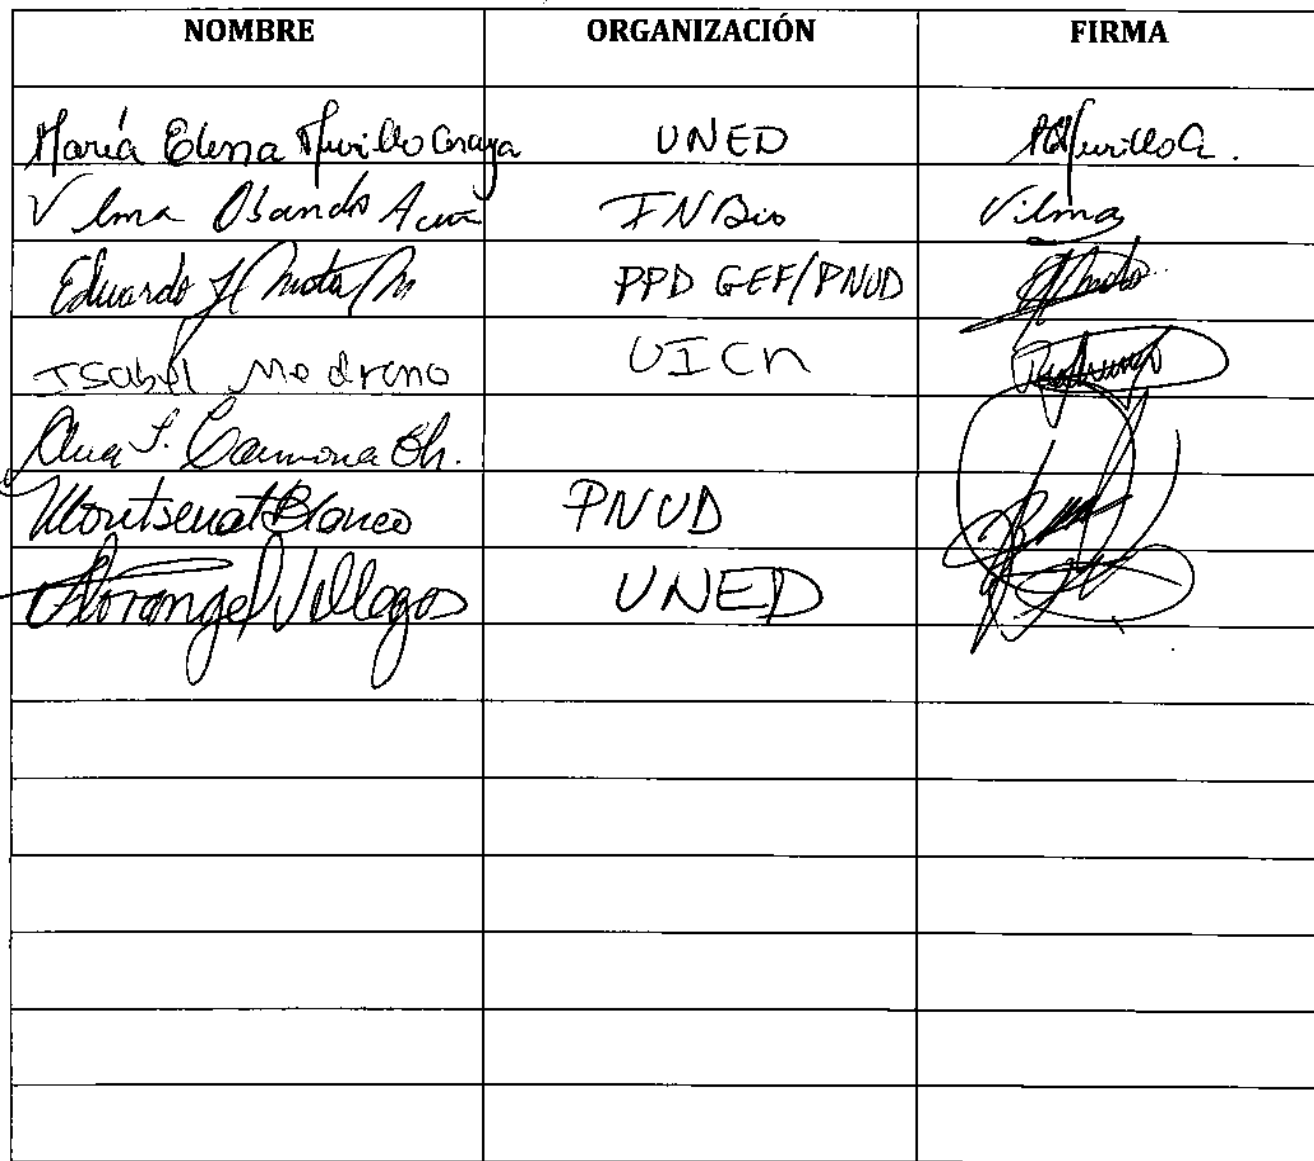 NOMBRE ORGANIZACIÓN FIRMA
María Elena Murillo Araya UNED Murillo A.
Vilma Obando Acuña INBio Vilma
Eduardo Mata M PPD GEF/PNUD
Isabel Medreno UICN
Ana Carmona Ch.
Montserrat Blanco PNUD
Florangel Villegas UNED